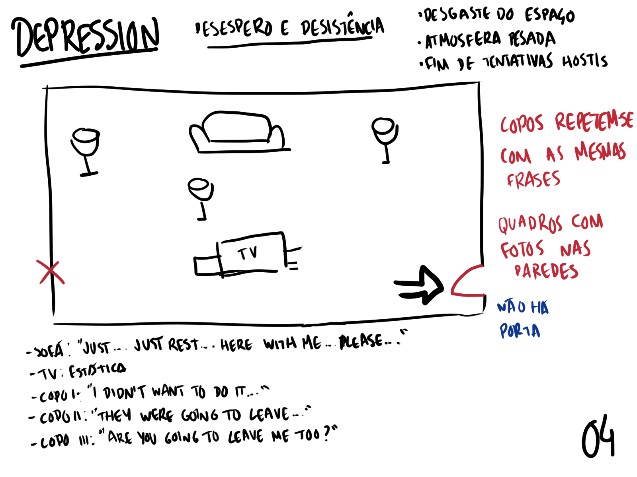 DEPRESSION
DESESPERO E DESISTÊNCIA
• DESGASTE DO ESPAÇO
• ATMOSFERA PESADA
• FIM DE TENTATIVAS HOSTIS
COPOS REPETEM-SE
COM AS MESMAS
FRASES
QUADROS COM
FOTOS NAS
PAREDES
NÃO HÁ
PORTA
TV
- SOFÁ: "JUST... JUST REST... HERE WITH ME... PLEASE..."
- TV: ESTÁTICA
- COPO I: "I DIDN'T WANT TO DO IT..."
- COPO II: "THEY WERE GOING TO LEAVE..."
- COPO III: "ARE YOU GOING TO LEAVE ME TOO?"
04